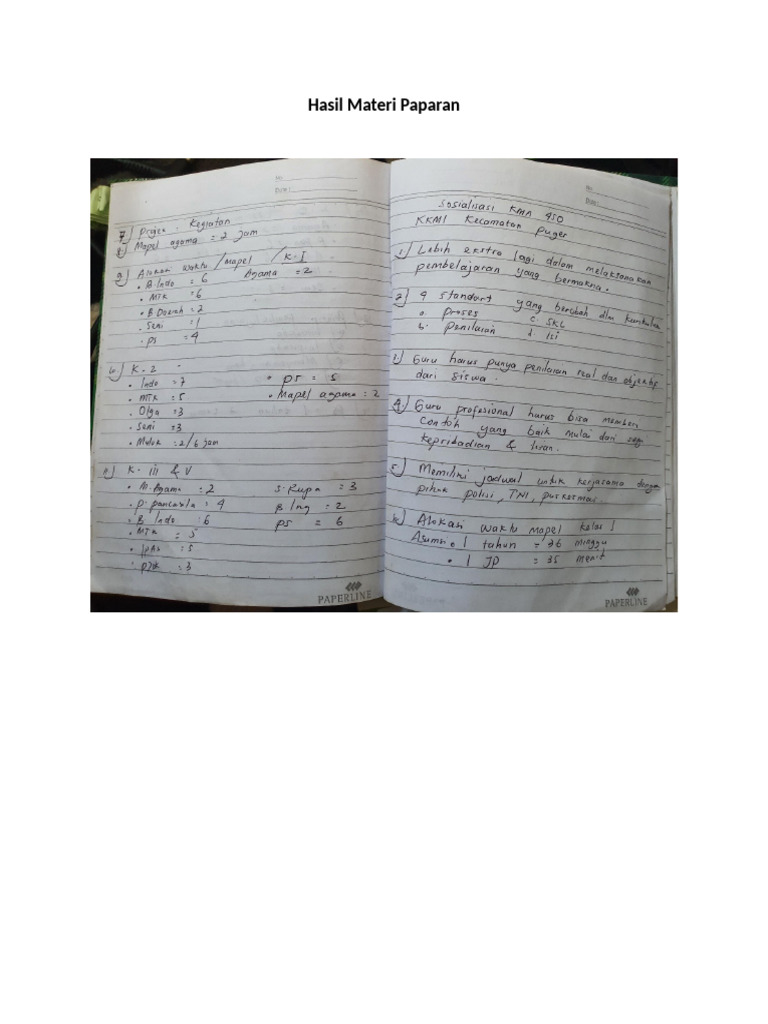 Hasil Materi Paparan
No.
Date:
7) Projen . Kegiatan
8) Mapel agama = 2 jam
9) Alokasi waktu / Mapel / K. I
• B. Indo = 6 Agama = 2
• MTK = 6
• B Daerah = 2
• Seni = 1
• ps = 4
10) K. 2
• Indo = 7 • ps = 5
• MTK = 5 • Mapel agama = 2
• Olga = 3
• Seni = 3
• Mulok = 2/6 jam
K. iii & V
• M. Agama = 2 S. Rupa = 3
• P. pancasila = 4 B Ing = 2
• B Indo = 6 ps = 6
• MTK = 5
• Ipas = 5
• = 3
PAPERLINE
No.
Date:
Sosialisasi KMA 450
KKMI Kecamatan Puger
1) Lebih ekstra lagi dalam melaksanakan
pembelajaran yang bermakna.
2) 4 standart yang berubah dlm
a. Proses c. SKL
b. Penilaian d. Isi
3) Guru harus punya penilaian real dan objektif
dari siswa.
4) Guru profesional harus bisa memberi
contoh yang baik mulai dari segi
&
5) Memiliki jadwal untuk kerjasama dengan
pihak polisi, TNI, puskesmas.
6) Alokasi waktu mapel kelas I
Asumsi • 1 tahun = 36 minggu
• 1 JP = 35 menit
PAPERLINE